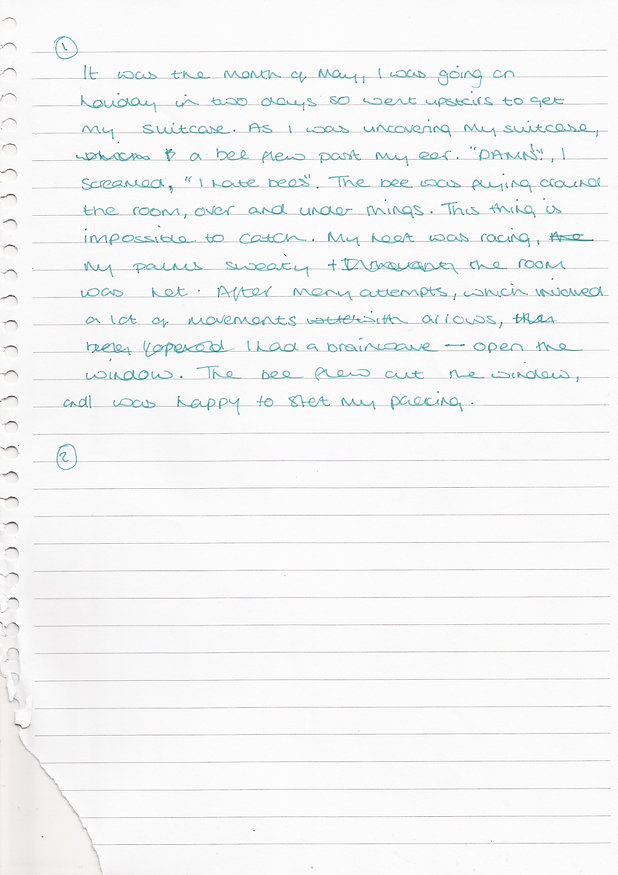 1
It was the month of May, I was going on
holiday in two days so went upstairs to get
my suitcase. As I was uncovering my suitcase,
a bee flew past my ear. "DAMN!", I
screamed, "I hate bees". The bee was flying around
the room, over and under things. This thing is
impossible to catch. My heart was racing, the
my palms sweaty + the room
was hot. After many attempts, which involved
a lot of movements with arrows,
I had a brainwave – open the
window. The bee flew out the window,
and I was happy to start my packing.
2